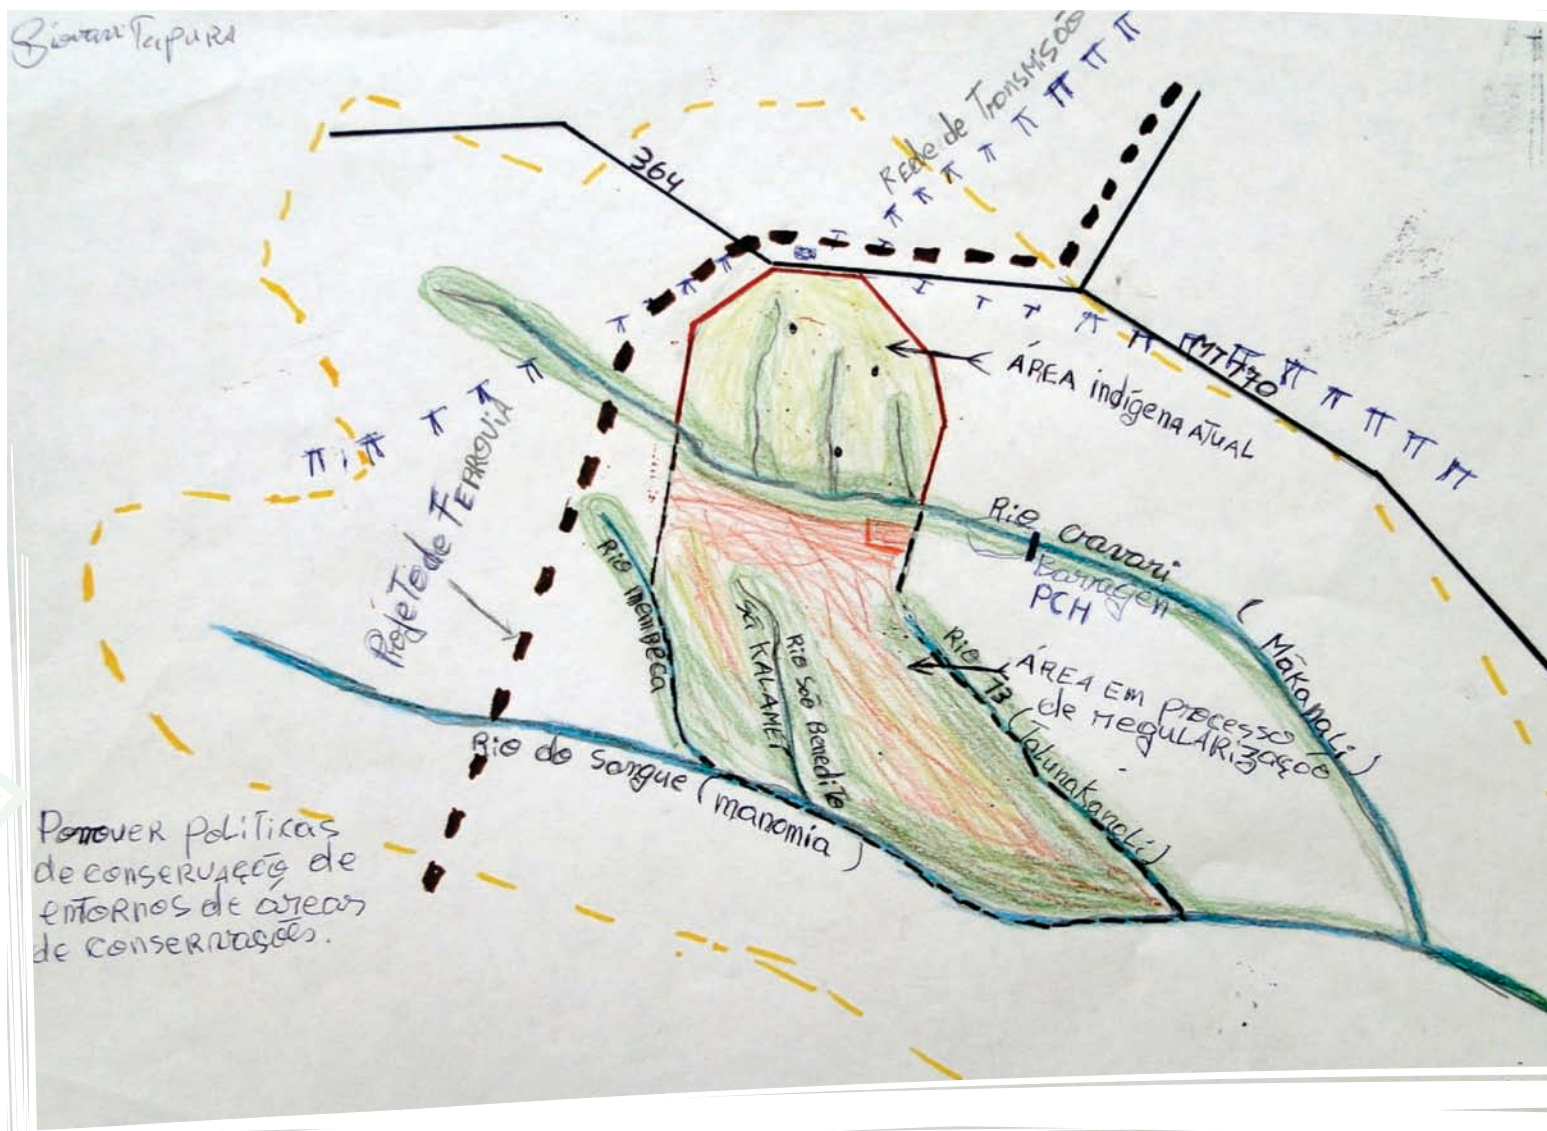 Giovani Tapura
Rede de Transmisão
364
ÁREA indígena ATUAL
MT 170
Projeto de FERROVIA
Rio Cravari
Barragen
PCH
(Mãkanali)
Rio membeca
São KALAMEI
Rio São Benedito
Rio 13 (Tolunakanali)
ÁREA EM processo
de regulARizaçãoo
Rio do Sangue (manomia)
Pomover políticas
de conservação de
entornos de áreas
de conservações.